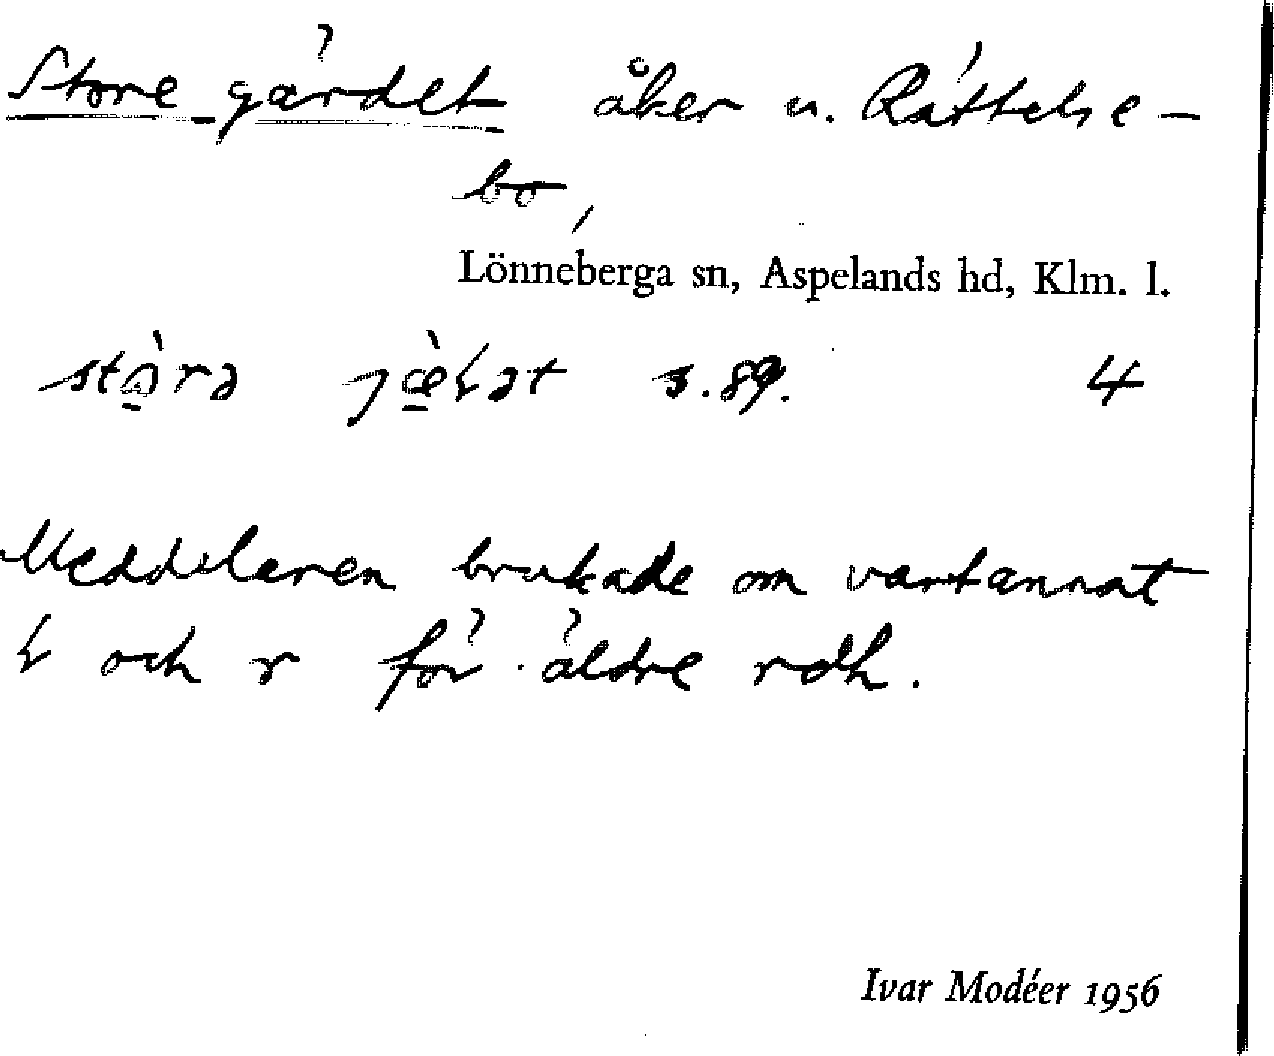 Store gärdet åker u. Rättelse-
bo,
Lönneberga sn, Aspelands hd, Klm. l.
s. 89. 4
Meddelaren brukade om vartannat
och r för äldre rdh.
Ivar Modéer 1956